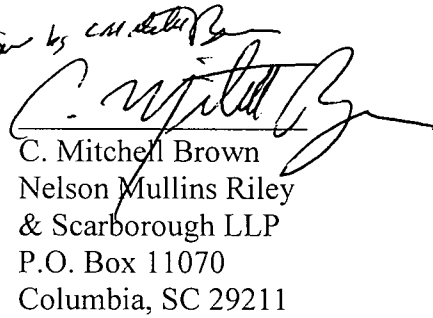 by C. Mitchell B
C. Mitchell Brown
C. Mitchell Brown
Nelson Mullins Riley
& Scarborough LLP
P.O. Box 11070
Columbia, SC 29211